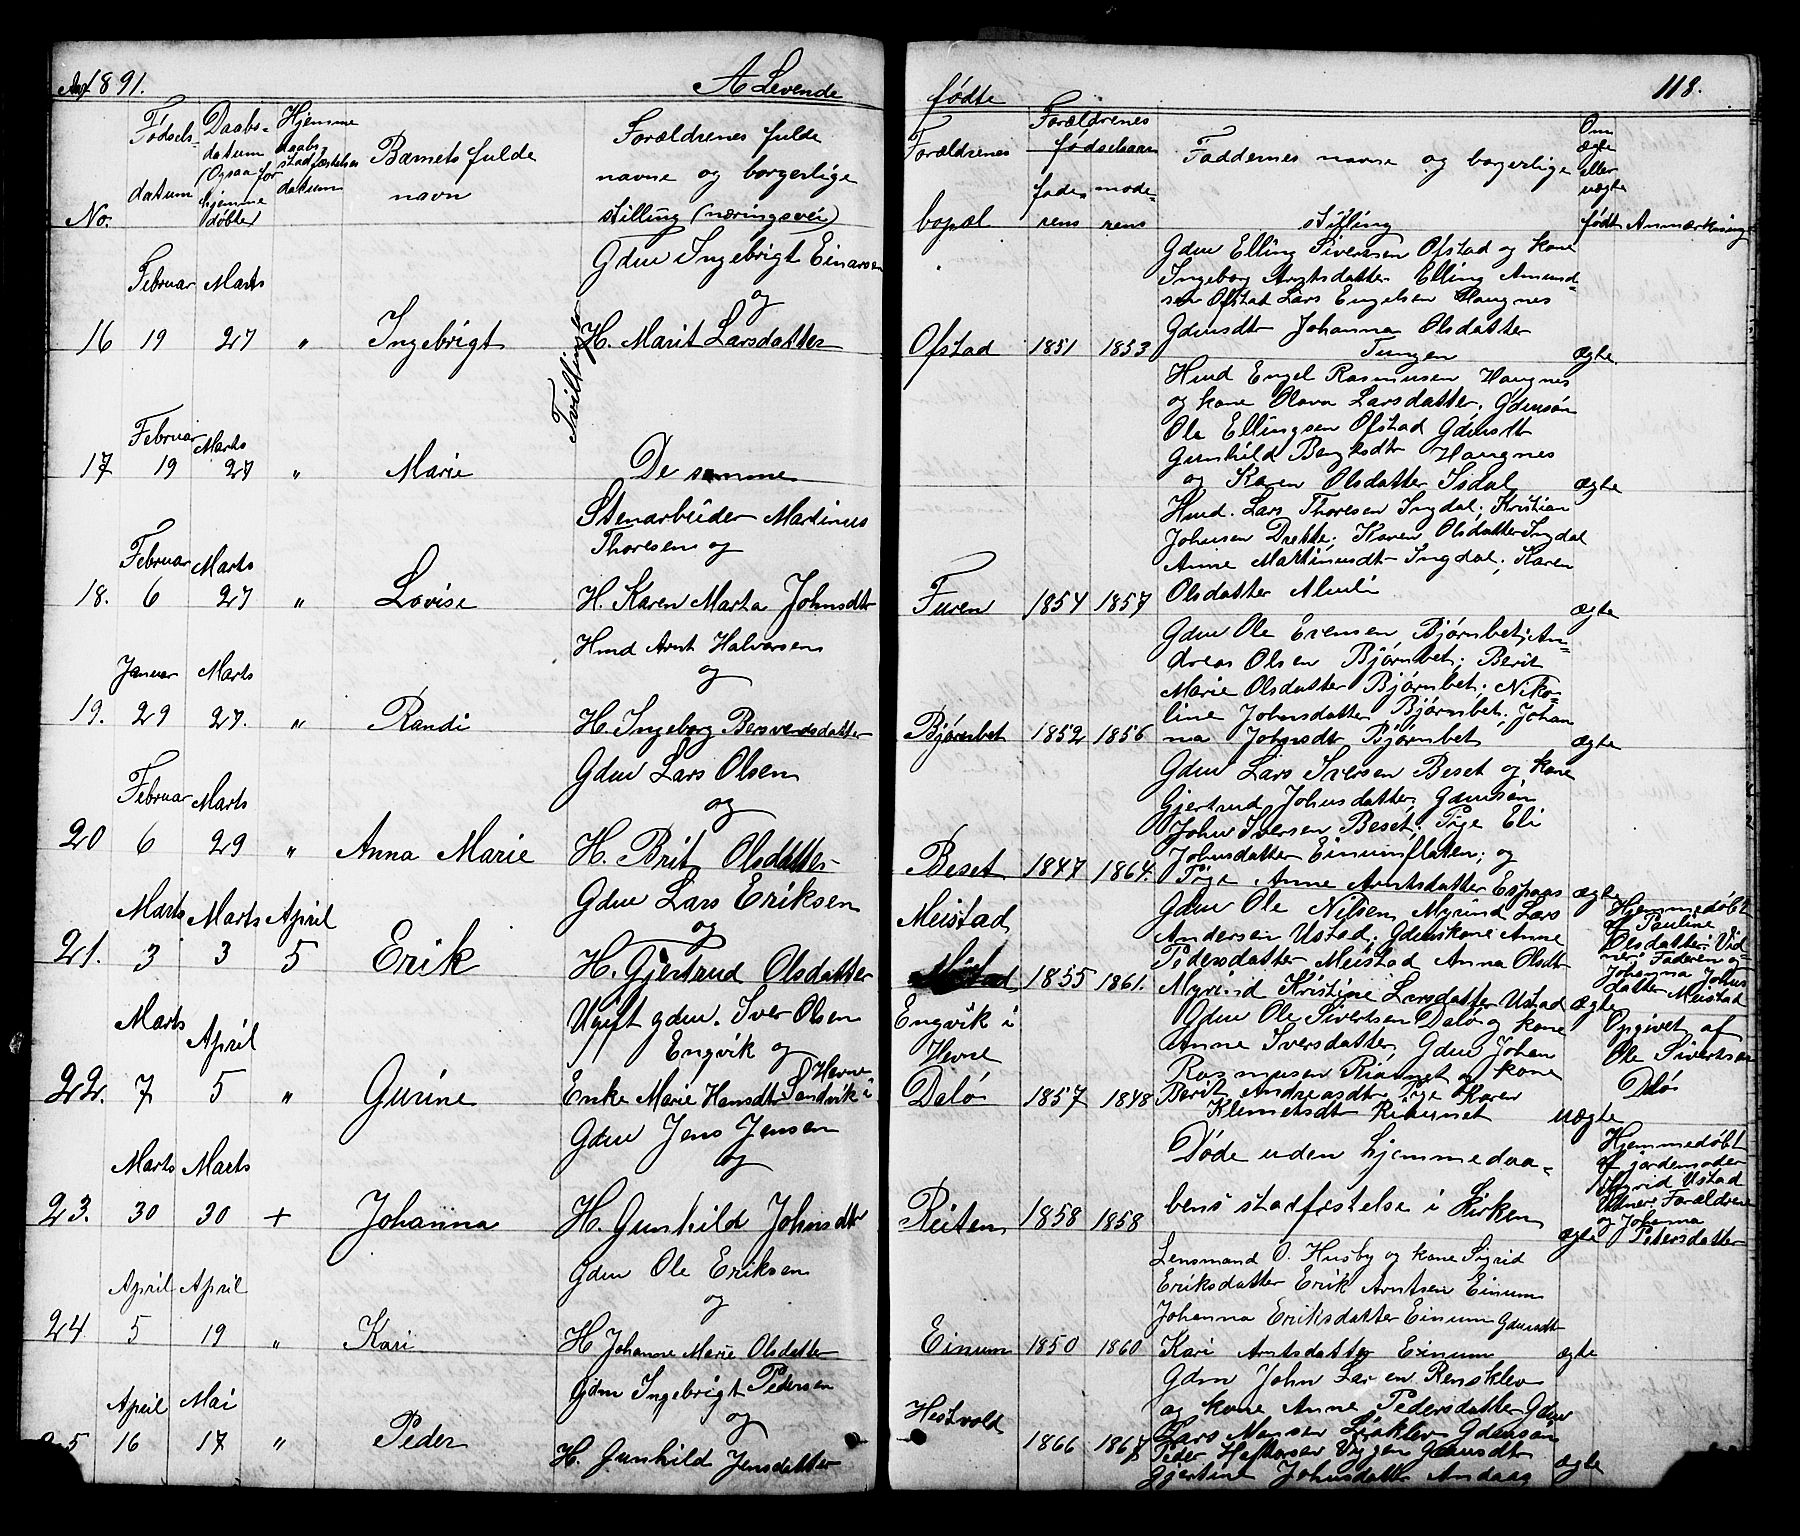 Aar 1891.
A Levende
No.
Fødsels-
datum
Daabs-
datum
(Ogsaa for
hjemme
døbte)
Hjemme
daabs-
stadfæstelses
datum
Barnets fulde
navn
Forældrenes fulde
navne og borgerlige
stilling (næringsvei)
16
Februar
19
Marts
27
"
Ingebrigt
Tvillinger
Gdm Ingebrigt Einarsen
og
H. Marit Larsdatter
17
Februar
19
Marts
27
"
Marie
De samme
18.
Februar
6
Marts
27
"
Lovise
Stenarbeider Martinus
Thoresen og
H. Karen Marta Johnsdtr
19.
Januar
29
Marts
27.
"
Randi
Hmd Arnt Halvorsen
og
H. Ingeborg Bersvendsdatter
20
Februar
6
Marts
29
"
Anna Marie
Gdm Lars Olsen
og
H. Brit Olsdatter
21.
Marts
3
Marts
3
April
5
Erik
Gdm Lars Eriksen
og
H. Gjertrud Olsdatter
22.
Marts
7
April
5
"
Gurine
Ugift gdm. Iver Olsen
Engvik og
Enke Marie Hansdtr Sandvik i
Hevne
23.
Marts
30
Marts
30
+
Johanna
Gdm Jens Jensen
og
H. Gunhild Johnsdtr
24
April
5
April
19
"
Kari
Gdm Ole Eriksen
og
H Johanne Marie Olsdatter
25
April
16
Mai
17
"
Peder
Gdm Ingebrigt Pedersen
og
H. Gunhild Jensdatter
118.
fødte
Forældrenes
bopæl
Forældrenes
fødselsaar
fade-
rens
mode-
rens
Faddernes navne og borgerlige
stilling
Om
ægte
eller
uægte
født
Anmærkning
Ofstad 1851 1853
Gdm Elling Sivertsen Ofstad og kone
Ingeborg Arntsdatter Elling Amund-
sen Ofstad Lars Engelsen Haugnes
Gdmsdtr Johanna Olsdatter
Tungen
ægte
Hmd Engel Rasmusen Haugnes
og kone Olava Larsdatter; Gdmsøn
Ole Ellingsen Ofstad Gdmsdtr
Gunhild Haugnes
og Karen Olsdatter Isdal
ægte
Furen 1854 1857
Hmd. Lars Thoresen Ingdal; Kristian
Johnsen Drette; Karen Olsdatter Ingdal
Anne Martinusdtr Ingdal; Karen
Olsdatter
ægte
Bjørnbet 1852 1856
Gdm Ole Evensen Bjørnbet; An-
dreas Olsen Bjørnbet; Berit
Marie Olsdatter Bjørnbet; Niko-
line Johnsdatter Bjørnbet; Johan
na Johnsdtr Bjørnbet
ægte
Beset 1847 1864.
Gdm Lars Iversen Beset og kone
Gjertrud Johnsdatter, Gdmsøn
John Iversen Beset; Pige Eli
Johnsdatter Einumflaten; og
Pige Anne Arntsdatter Espaas
ægte
Meistad
1855 1861.
Gdm Ole Nilsen Myrind Lars
Andersen Ustad; Gdmskone Anne
Pedersdatter Meistad Anna Olsdtr
Myrind Kristine Larsdatter Ustad
ægte
Hjemmedøbt
af Pauline
Olsdatter; Vid
ner: Faderen og
Johanna Johns
datter Meistad
Engvik i
Hevne
Dalø 1857 1848
Gdm Ole Sivertsen Dalø og kone
Anne Iversdatter, Gdm Johan
Rasmusen og kone
Berit Andreasdtr Pige Karen
Klemetsdtr
uægte
Opgivet af
Ole Sivertsen
Dalø
Reiten 1858 1858
Døde uden hjemmedaa-
bens stadfæstelse i Kirken
ægte
Hjemmedøbt
af jordemoder
Ustad
Vidner: Forældrene
og Johanna
Petersdatter
Einum 1850 1860
Lensmand O. Husby og kone Sigrid
Eriksdatter Erik Arntsen Einum
Johanna Eriksdatter Einum Gdmsdtr
Kari Arntsdatter Einum
ægte
Hestvold
1866 1867
Gdm John Larsen Rensklev
og kone Anne Pedersdatter Gdm
Lars Gdmsøn
Peder Vuggen Gdmsdtr
Gjertine Johnsdatter
ægte